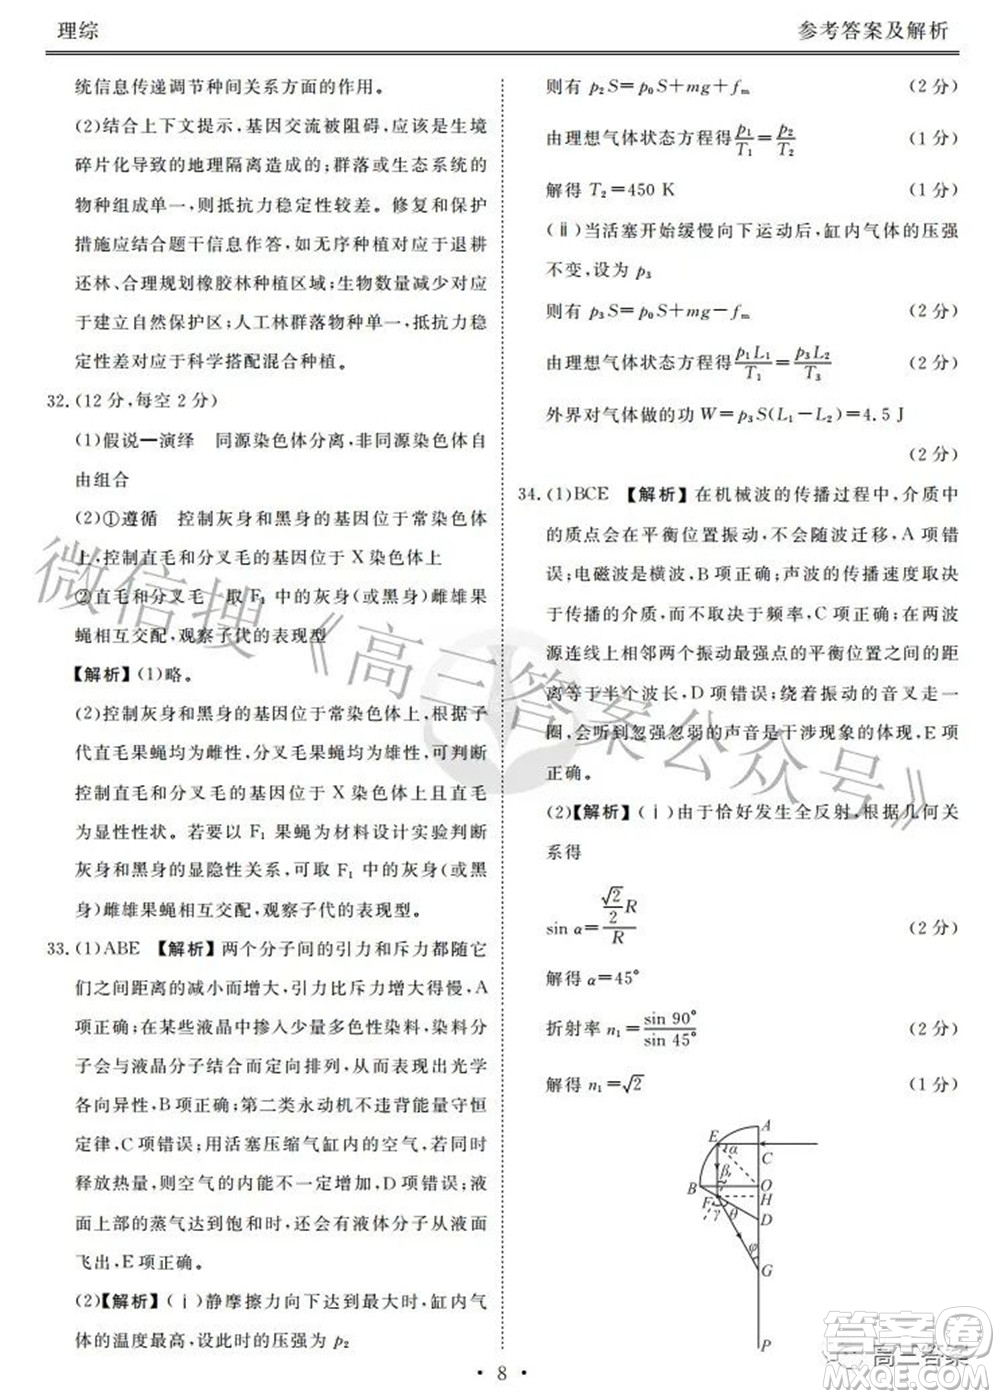 理综
参考答案及解析
统信息传递调节种间关系方面的作用。
(2)结合上下文提示，基因交流被阻碍，应该是生境
碎片化导致的地理隔离造成的；群落或生态系统的
物种组成单一，则抵抗力稳定性较差。修复和保护
措施应结合题干信息作答，如无序种植对应于退耕
还林、合理规划橡胶林种植区域；生物数量减少对应
于建立自然保护区；人工林群落物种单一，抵抗力稳
定性差对应于科学搭配混合种植。
32.(12分，每空2分)
(1)假说—演绎　同源染色体分离，非同源染色体自
由组合
(2)①遵循　控制灰身和黑身的基因位于常染色体
上，控制直毛和分叉毛的基因位于 X 染色体上
②直毛和分叉毛　取 F₁ 中的灰身(或黑身)雌雄果
蝇相互交配，观察子代的表现型
【解析】(1)略。
(2)控制灰身和黑身的基因位于常染色体上，根据子
代直毛果蝇均为雌性，分叉毛果蝇均为雄性，可判断
控制直毛和分叉毛的基因位于 X 染色体上且直毛
为显性性状。若要以 F₁ 果蝇为材料设计实验判断
灰身和黑身的显隐性关系，可取 F₁ 中的灰身(或黑
身)雌雄果蝇相互交配，观察子代的表现型。
33.(1)ABE 【解析】两个分子间的引力和斥力都随它
们之间距离的减小而增大，引力比斥力增大得慢，A
项正确；在某些液晶中掺入少量多色性染料，染料分
子会与液晶分子结合而定向排列，从而表现出光学
各向异性，B 项正确；第二类永动机不违背能量守恒
定律，C 项错误；用活塞压缩气缸内的空气，若同时
释放热量，则空气的内能不一定增加，D 项错误；液
面上部的蒸气达到饱和时，还有液体分子从液面
飞出，E 项正确。
(2)【解析】(ⅰ)静摩擦力向下达到最大时，缸内气
体的温度最高，设此时的压强为 p₂
则有 p₂S=p₀S+mg+fₘ (2分)
由理想气体状态方程得p₁/T₁=p₂/T₂ (1分)
解得 T₂=450 K (1分)
(ⅱ)当活塞开始缓慢向下运动后，缸内气体的压强
不变，设为 p₃
则有 p₃S=p₀S+mg−fₘ (2分)
由理想气体状态方程得p₁L₁/T₁=p₃L₂/T₃ (2分)
外界对气体做的功 W=p₃S(L₁−L₂)=4.5 J
(2分)
34.(1)BCE 【解析】在机械波的传播过程中，介质中
的质点会在平衡位置振动，不会随波迁移，A 项错
误；电磁波是横波，B 项正确；声波的传播速度取决
于传播的介质，而不取决于频率，C 项正确；在两波
源连线上相邻两个振动最强点的平衡位置之间的距
离等于半个波长，D 项错误；绕着振动的音叉走一
圈，会听到忽强忽弱的声音是干涉现象的体现，E 项
正确。
(2)【解析】(ⅰ)由于恰好发生全反射，根据几何关
系得
sin α=(√2/2 R)/R (2分)
解得 α=45°
折射率 n₁=sin 90°/sin 45° (2分)
解得 n₁=√2 (1分)
A
E
α
C
β
B
O
F
H
γ
θ
D
φ
G
P
· 8 ·
微信搜《高三答案公众号》
答案圈
高三答案